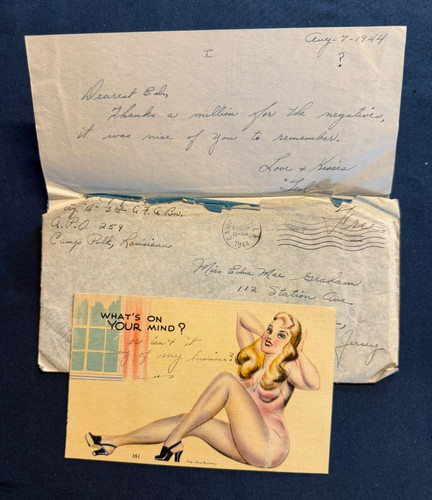 Aug. 7-1944
I
?
Dearest Edna,
Thanks a million for the negatives,
it was nice of you to remember.
Love & Kisses
A.P.O. 259
Camp Polk, Louisiana
1944
Free
Miss Edna Mae Graham
112 Station Ave
Jersey
WHAT'S ON
YOUR MIND?
or isn't it
any of my business?
351